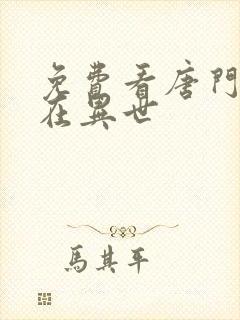 免費看唐門
在異世
馬其平